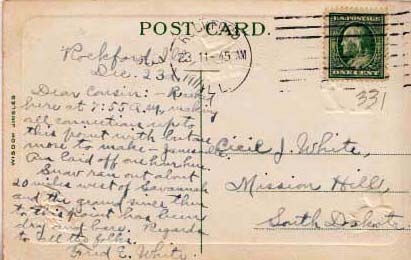 POST CARD.
Rockford, Ill.
Dec. 23
Dear Cousin: -
here at 7:55 A.M., making
all connections up to
this point with but one
more to make - Janesville
Am laid off one hour here.
Snow ran out about
20 miles west of Savannah
and the ground since then
to this point has been
dry and bare. Regards
to all the folks.
Enid E. White.
23. 11-45 AM
ILL.
U.S. POSTAGE
ONE CENT
331
Cecil J. White,
Mission Hill,
South Dakota.
WISDOM JINGLES